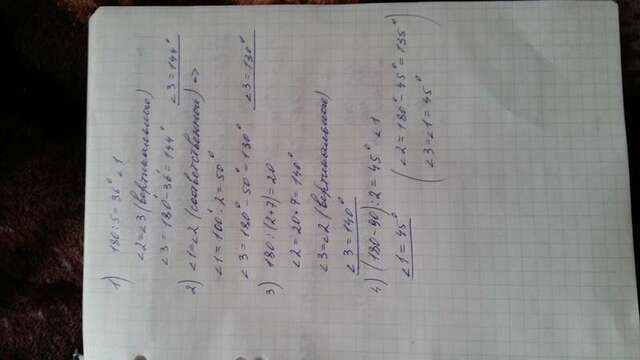 1) 180:5=36° ∠1
∠2=∠3 (вертикальное)
∠3=180°-36°=144° ∠3=144°
2) ∠1=∠2 (соответственное) =>
∠1=100°:2=50°
∠3=180°-50°=130° ∠3=130°
3) 180:(2+7)=20
∠2=20*7=140°
∠3=∠2 (вертикальное)
∠3=140°
4) (180-90):2=45° ∠1
∠1=45° (∠2=180°-45°=135°
∠3=∠1=45°)